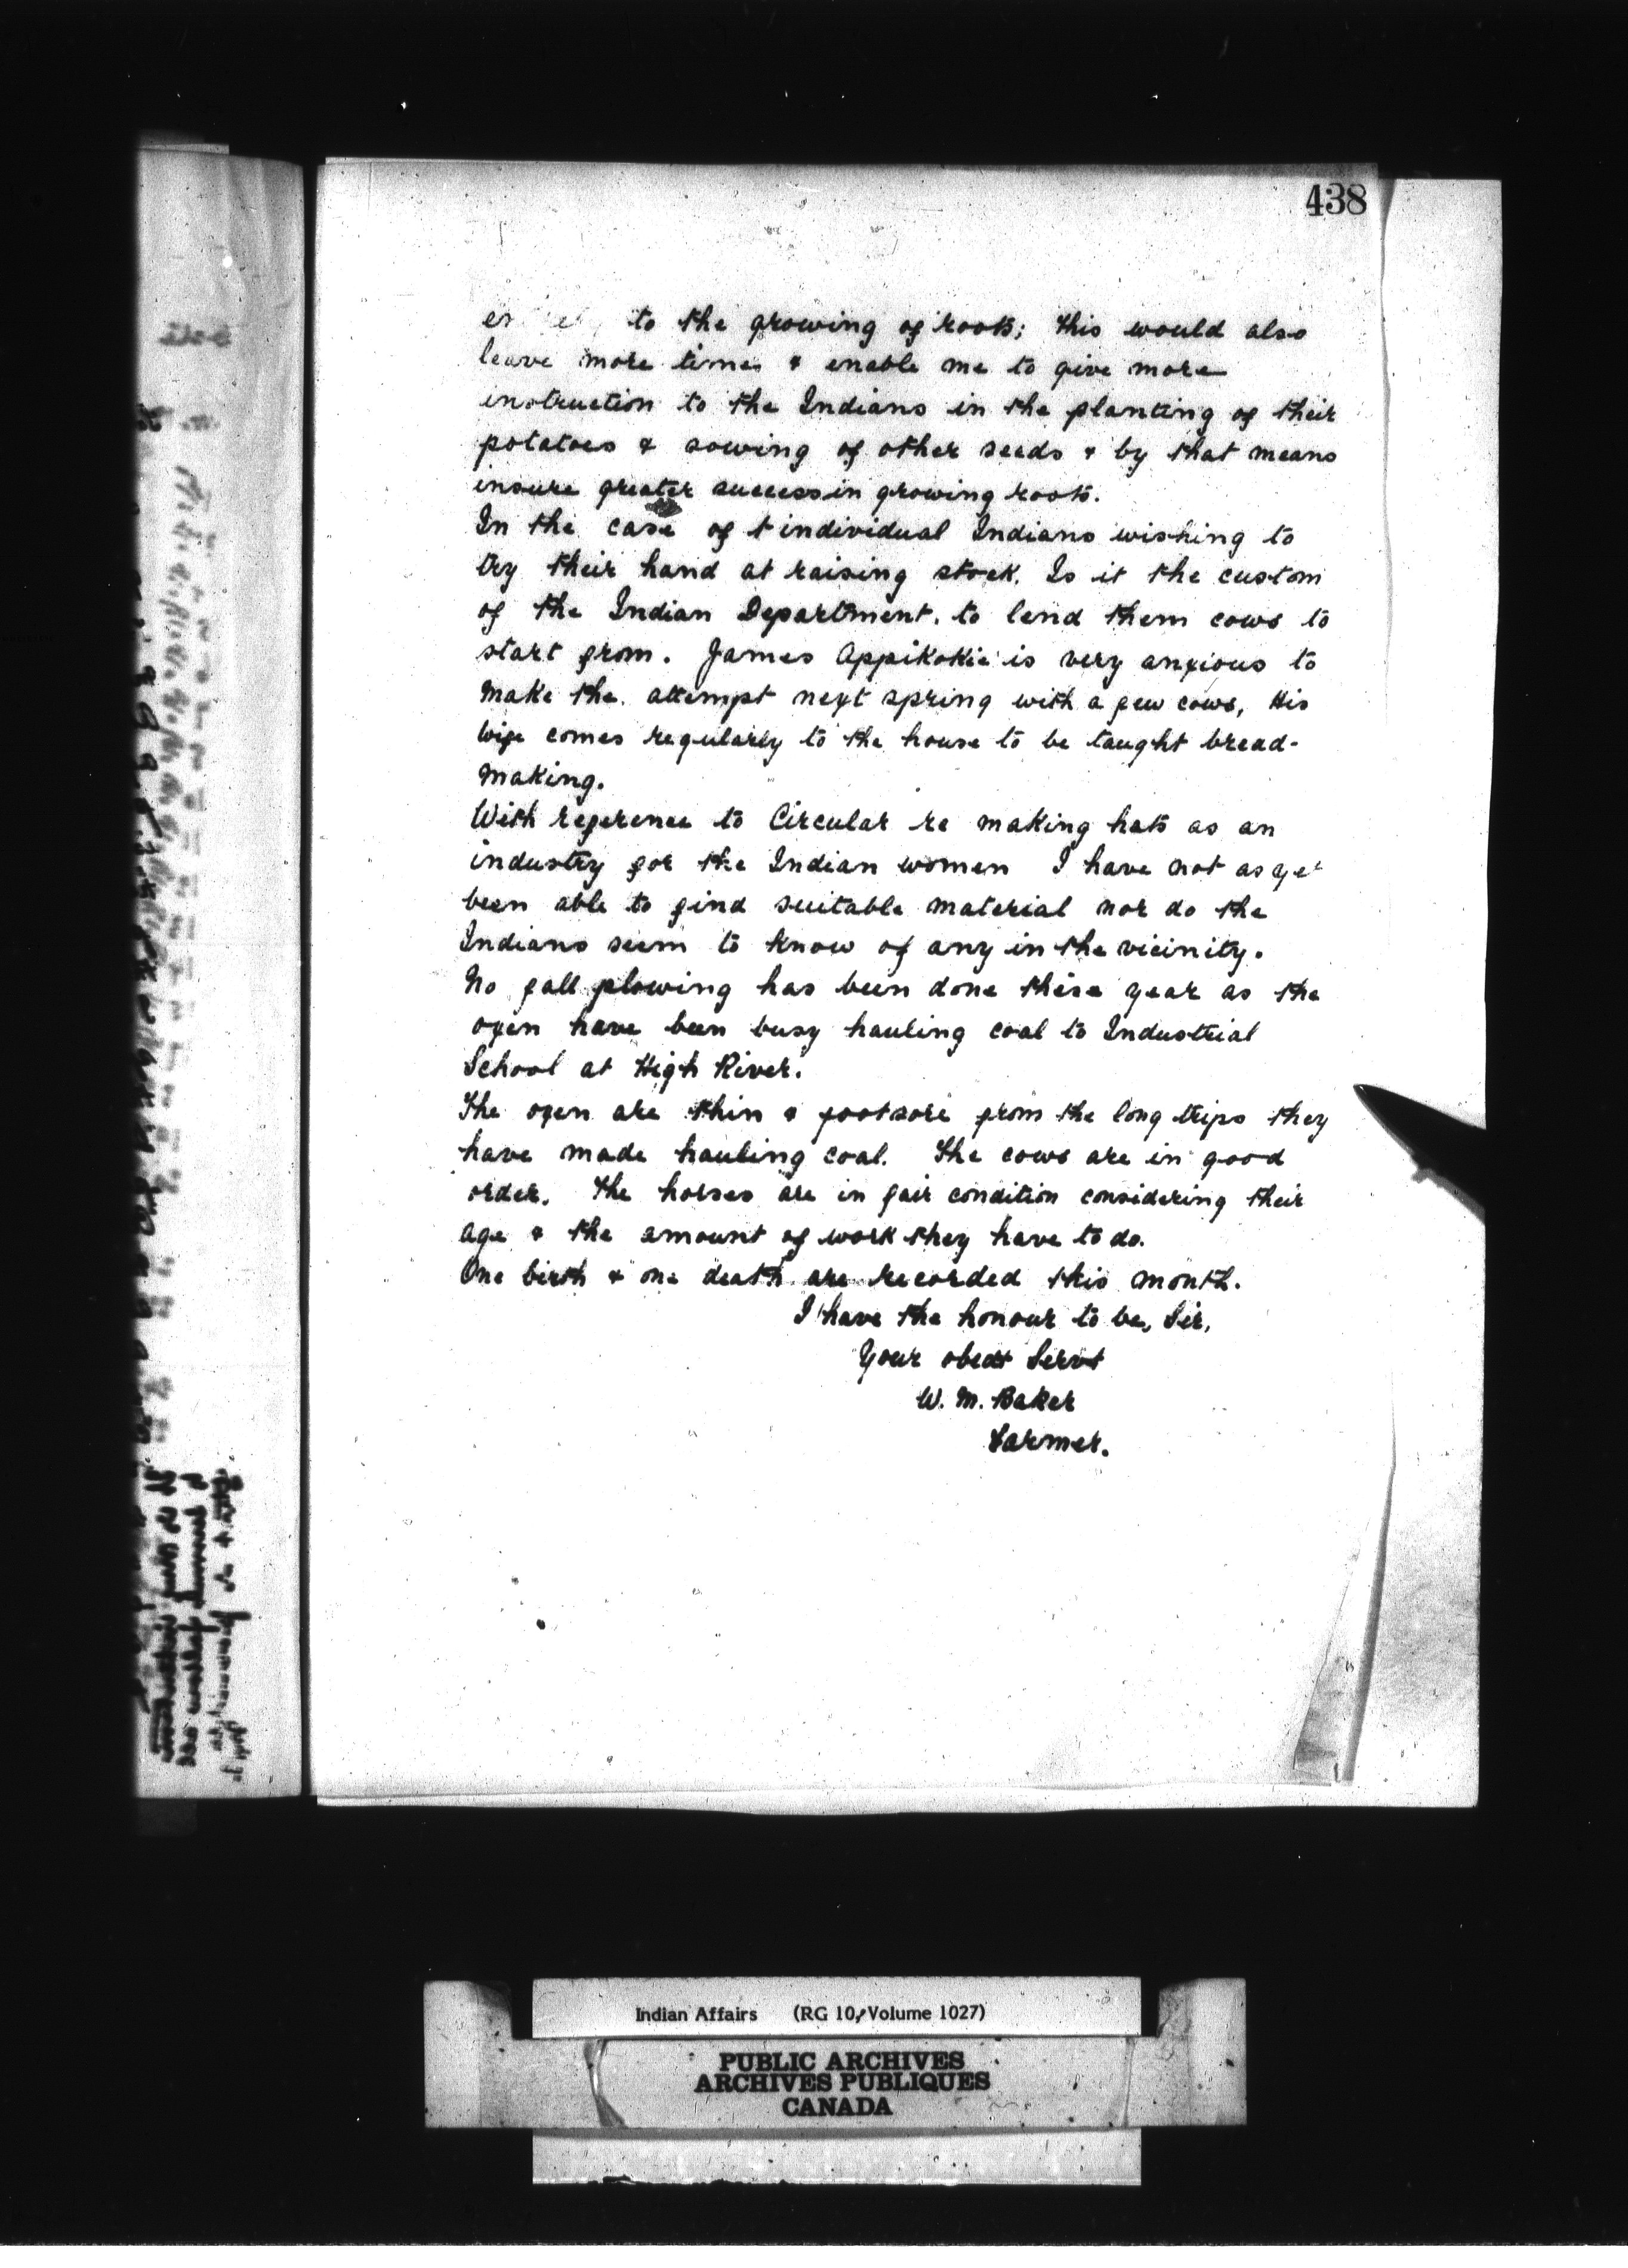 438
to the growing of roots; this would also
leave more times & enable me to give more
instruction to the Indians in the planting of their
potatoes & sowing of other seeds & by that means
insure greater success in growing roots.
In the case of individual Indians wishing to
try their hand at raising stock. Is it the custom
of the Indian Department. to lend them cows to
start from. James Appikokie is very anxious to
make the attempt next spring with a few cows, His
wife comes regularly to the house to be taught bread-
making.
With reference to Circular re making hats as an
industry for the Indian women I have not as yet
been able to find suitable material nor do the
Indians seem to know of any in the vicinity.
No fall plowing has been done this year as the
oxen have been busy hauling coal to Industrial
School at High River.
The oxen are thin & footsore from the long trips they
have made hauling coal. The cows are in good
order. The horses are in fair condition considering their
age & the amount of work they have to do.
One birth & one death are recorded this month.
I have the honour to be, Sir,
Your obedt Servt
W. M. Baker
Farmer.
Indian Affairs (RG 10, Volume 1027)
PUBLIC ARCHIVES
ARCHIVES PUBLIQUES
CANADA